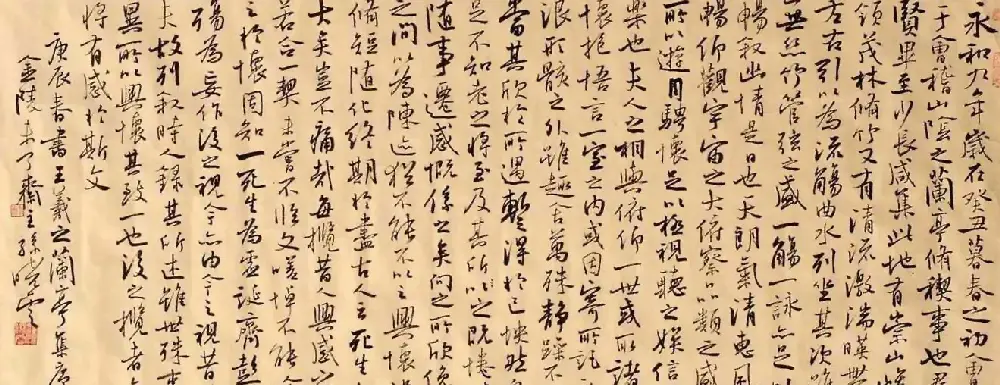 永和九年歲在癸丑暮春之初會
于會稽山陰之蘭亭脩禊事也羣
賢畢至少長咸集此地有崇山峻
領茂林脩竹又有清流激湍暎帶
左右引以為流觴曲水列坐其次雖
無絲竹管弦之盛一觴一詠亦足以
暢敘幽情是日也天朗氣清惠風
暢仰觀宇宙之大俯察品類之盛
所以遊目騁懷足以極視聽之娛信
樂也夫人之相與俯仰一世或取諸
懷抱悟言一室之內或因寄所託
浪形骸之外雖趣舍萬殊靜躁不
當其欣於所遇暫得於己怏然自
足不知老之將至及其所之既惓
隨事遷感慨係之矣向之所欣俛
之間以為陳迹猶不能不以之興懷
脩短隨化終期於盡古人云死生
大矣豈不痛哉每攬昔人興感之
若合一契未嘗不臨文嗟悼不能
之於懷固知一死生為虛誕齊彭
殤為妄作後之視今亦由今之視昔
夫故列敘時人錄其所述雖世殊事
異所以興懷其致一也後之攬者
將有感於斯文
庚辰春書王羲之蘭亭集序
金陵未了齋主孫曉雲